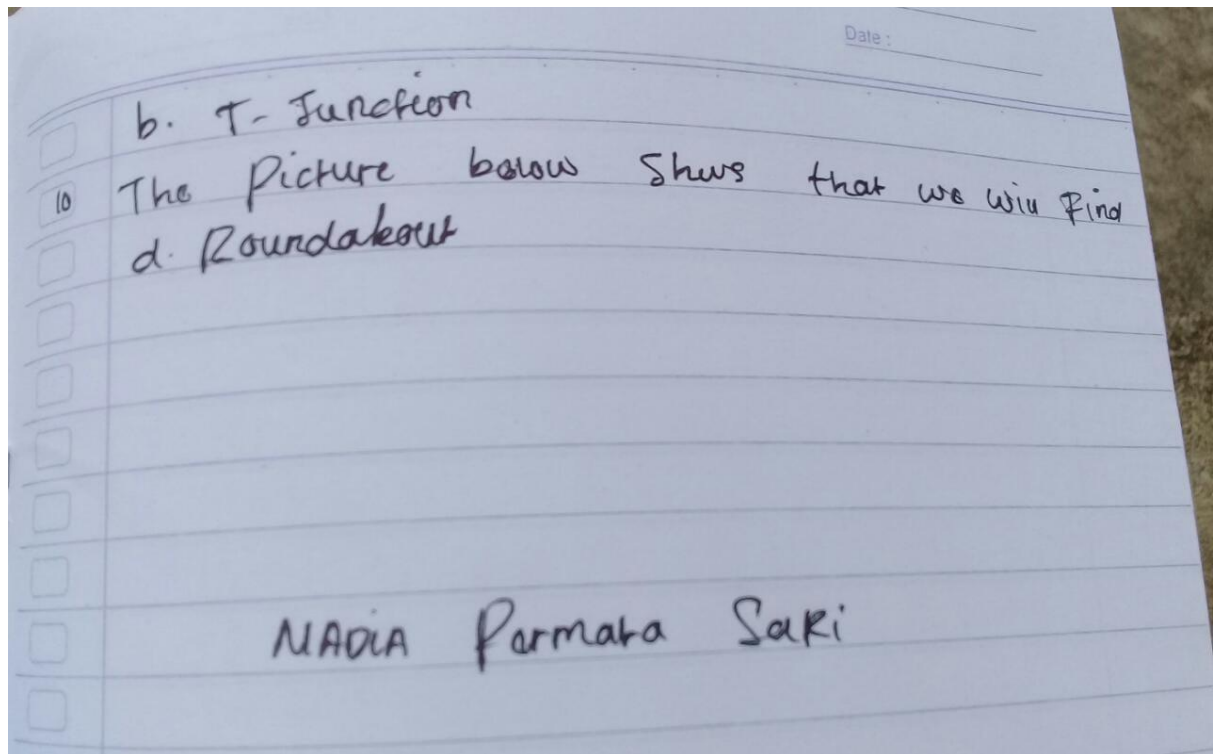 Date :
b. T- Junction
10 The Picture below Shws that we will Find
d. Roundabout
NADIA Permata Sari